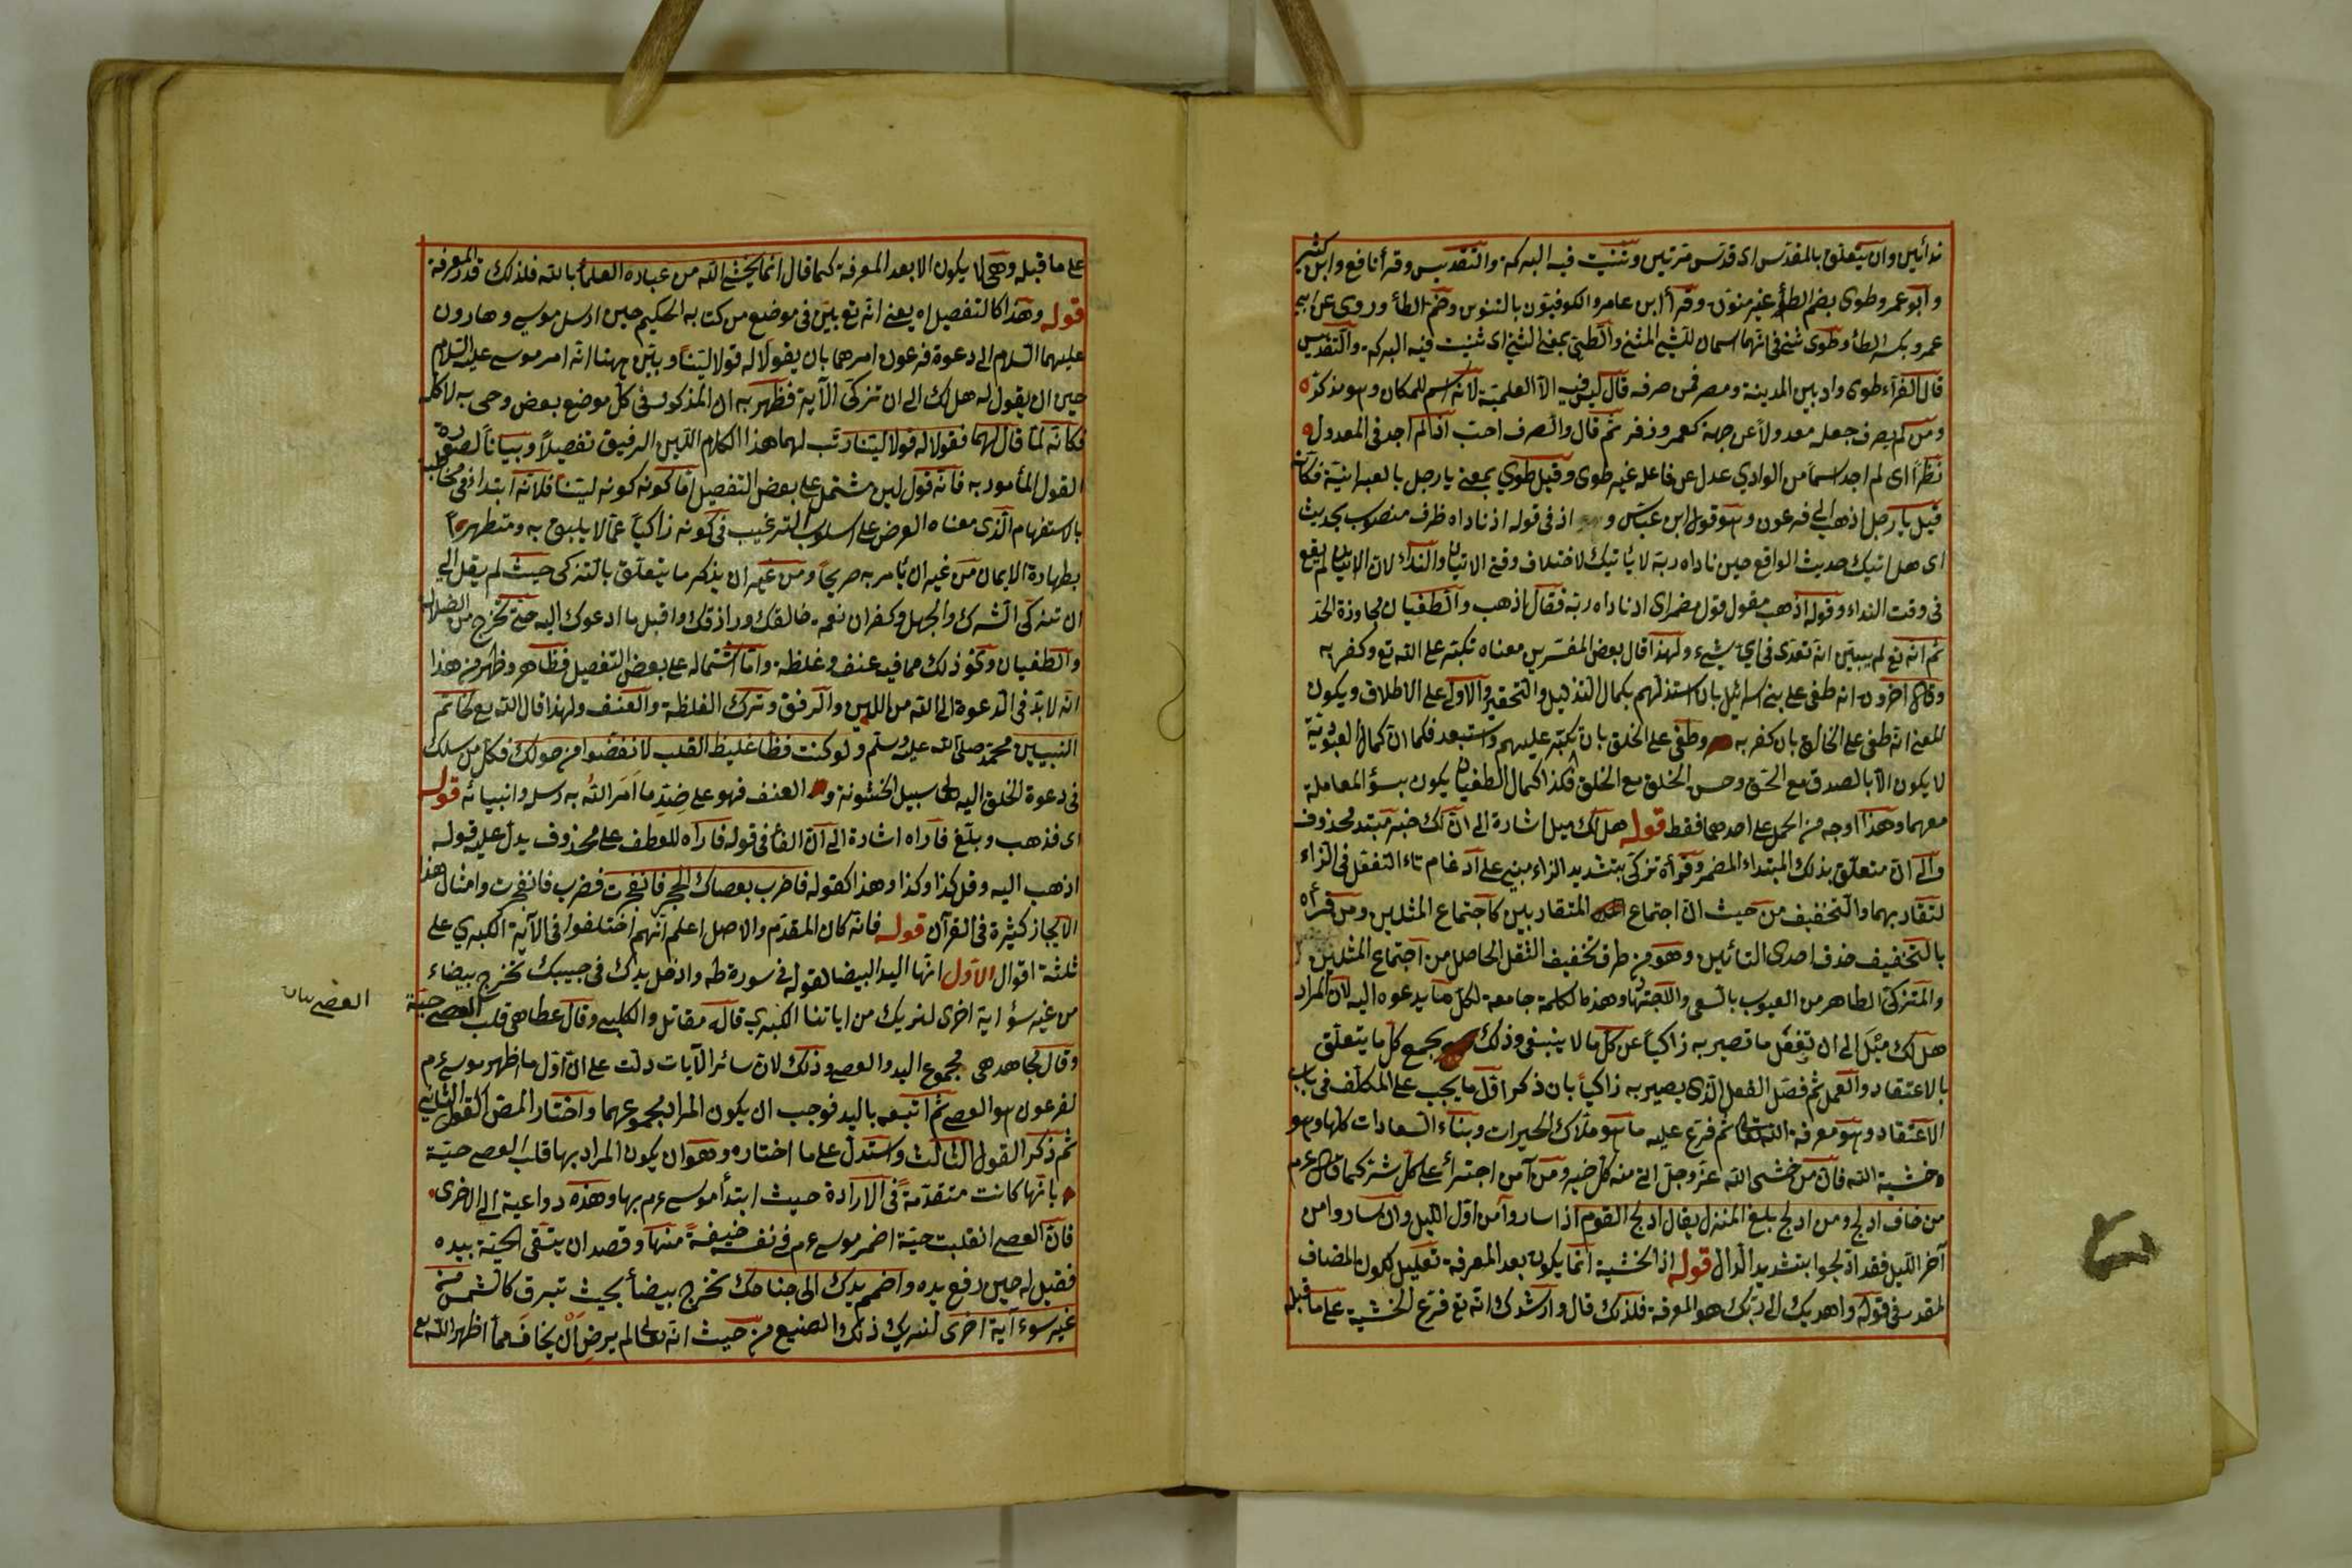 ندائين وان يتعلق بالمقدس اى قدس مرتين وتثنيت فيه البركة والتقديس وقرأ نافع وابن كثير
وابو عمرو طوى بضم الطاء غير منون وقرأ ابن عامر والكوفيون بالتنوين وضم الطاء وروى عن ابى
عمرو بكسر الطاء وطوى مثنى فى انهما اسمان للشئ المثنى والطى بمعنى الثنى اى ثنيت فيه البركة والتقديس
قال الفراء طوى واد بين المدينة ومصر فمن صرفه قال ليس فيه الا العلمية لانه اسم للمكان وهو مذكر
ومن لم يصرف جعله معدولا عن جهة كعمر وزفر ثم قال والصرف احب اذ لم اجد فى المعدول
نظرا اى لم اجد اسما من الوادي عدل عن فاعل غير طوى وقيل طوى بمعنى يا رجل بالعبرانية فكانه
قيل يا رجل اذهب الى فرعون وهو قول ابن عباس و اذ فى قوله اذ ناداه ظرف منصوب بحديث
اى هل اتيك حديث الواقع حين ناداه ربه لا ياتيك لاختلاف وقتى الاتيان والنداء لان الاتيان لم يقع
فى وقت النداء وقوله اذهب مقول قول مضمر اى اذ ناداه ربه فقال اذهب والطغيان مجاوزة الحد
ثم انه تع لم يبين انه تعدى فى اي شيء ولهذا قال بعض المفسرين معناه تكبر على الله تع وكفر به
وقال آخرون انه طغى على بنى اسرائيل بان استذلهم بكمال التذليل والتحقير والاولى على الاطلاق ويكون
المعنى انه طغى على الخالق بان كفر به وطغى على الخلق بان تكبر عليهم واستبعد فكما ان كمال العبودية
لا يكون الا بالصدق مع الحق وحسن الخلق مع الخلق فكذا كمال الطغيان يكون بسوء المعاملة
معهما وهذا اوجه من الحمل على احدهما فقط قوله هل لك ميل اشارة الى ان لك خبر مبتدء محذوف
والى ان متعلق بذلك المبتداء المضمر وقرأه تزكى بتشديد الزاء مبنى على ادغام تاء التفعل فى الزاء
لتقاربهما والتخفيف من حيث ان اجتماع المتقاربين كاجتماع المثلين ومن قرأه
بالتخفيف حذف احدى التائين وهو من طرق تخفيف الثقل الحاصل من اجتماع المثلين
والمتزكى الطاهر من العيوب بالسعى وهذه الكلمة جامعة لكل ما يدعوه اليه لان المراد
هل لك ميل الى ان تفعل ما تصير به زاكيا عن كل ما لا ينبغى وذلك بجمع كل ما يتعلق
بالاعتقاد والعمل ثم فصل الفعل الذى يصير به زاكيا بان ذكر اول ما يجب على المكلف فى باب
الاعتقاد وهو معرفة الله تعالى ثم فرع عليه ما هو ملاك الخيرات وبناء السعادات كلها وهو
خشية الله فان من خشى الله عز وجل اتى منه كل خير ومن آمن اجترأ على كل شر كما قال عم
من خاف ادلج ومن ادلج بلغ المنزل يقال ادلج القوم اذا ساروا من اول الليل وان ساروا من
آخر الليل فقد ادلجوا بتشديد الدال قوله اذ الخشية انما يكون بعد المعرفة تعليل لكون المضاف
لمقدر فى قوله واهديك الى ربك هو المعرفة فلذلك قال وارشدك انه تع فرع الخشية على ما قبله
على ما قبله وهى لا يكون الا بعد المعرفة كما قال انما يخشى الله من عباده العلماء بالله فلذلك قدر المعرفة
قوله وهذا كالتفصيل اه يعنى انه تع بين فى موضع من كتابه الحكيم حين ارسل موسى وهارون
عليهما السلام الى دعوة فرعون امرهما بان يقولا له قولا لينا وبين ههنا انه امر موسى عليه السلام
حين ان يقول له هل لك الى ان تزكى الآية فظهر به ان المذكور فى كل موضع بعض وحى به لا كله
فكانه لما قال لهما فقولا له قولا لينا رتب لهما هذا الكلام اللين الرفيق تفصيلا وبيانا لصورة
القول المأمور به فانه قول لين مشتمل على بعض التفصيل اما كونه كونه لينا فلانه ابتدا فى مخاطبه
بالاستفهام الذى معناه العرض على اسلوب الترغيب فى كونه زاكيا عما لا يليق به ومتطهرا
بطهارة الايمان من غير ان يأمر به صريحا ومن غير ان يذكر ما يتعلق بالتزكى حيث لم يقل الى
ان تزكى الشرك والجهل وكفران نعمه خالقك ورازقك واقبل ما ادعوك اليه حتى تخرج من الضلال
والطغيان ونحو ذلك مما فيه عنف وغلظة واما اشتماله على بعض التفصيل فظاهر وظهر من هذا
انه لا بد فى الدعوة الى الله من اللين والرفق وترك الغلظة والعنف ولهذا قال الله تع لخاتم
النبيين محمد صلى الله عليه وسلم ولو كنت فظا غليظ القلب لانفضوا من حولك فكل من سلك
فى دعوة الخلق اليه على سبيل الخشونة و العنف فهو على ضد ما امر الله به رسله وانبيائه قوله
اى فذهب وبلغ فاراه اشارة الى ان الفاء فى قوله فاراه للعطف على محذوف يدل عليه قوله
اذهب اليه وقل كذا وكذا وهذا كقوله فاضرب بعصاك الحجر فانفجرت فضرب فانفجرت وامثال هذا
الايجاز كثيرة فى القرآن قوله فانه كان المقدم والاصل اعلم انهم اختلفوا فى الآية الكبرى على
ثلثة اقوال الاول انها اليد البيضا لقوله فى سورة طه وادخل يدك فى جيبك تخرج بيضاء
من غير سؤ اية اخرى لنريك من اياتنا الكبرى قاله مقاتل والكلبى وقال عطا هى قلب العصى حية
العصى بيان
وقال مجاهد هى مجموع اليد والعصى وذلك لان سائر الآيات دلت على ان اول ما اظهر موسى عم
لفرعون هو العصى ثم اتبعه باليد فوجب ان يكون المراد مجموعهما واختار المص القول الثانى
ثم ذكر القول الثالث واستدل على ما اختاره وهو ان يكون المراد بها قلب العصى حية
بانها كانت متقدمة فى الارادة حيث ابتدأ موسى عم بها وهذه دواعية الى الاخرى
فان العصى انقلبت حية اضمر موسى عم فى نفسه خيفة منها وقصد ان يتقى الحية بيده
فقيل له حين رفع يده واضمم يدك الى جناحك تخرج بيضأ بحيث تبرق كالشمس من
غير سوء آية اخرى لنريك ذلك الصنيع من حيث انه تعالى لم يرض ان يخاف مما اظهر الله تع